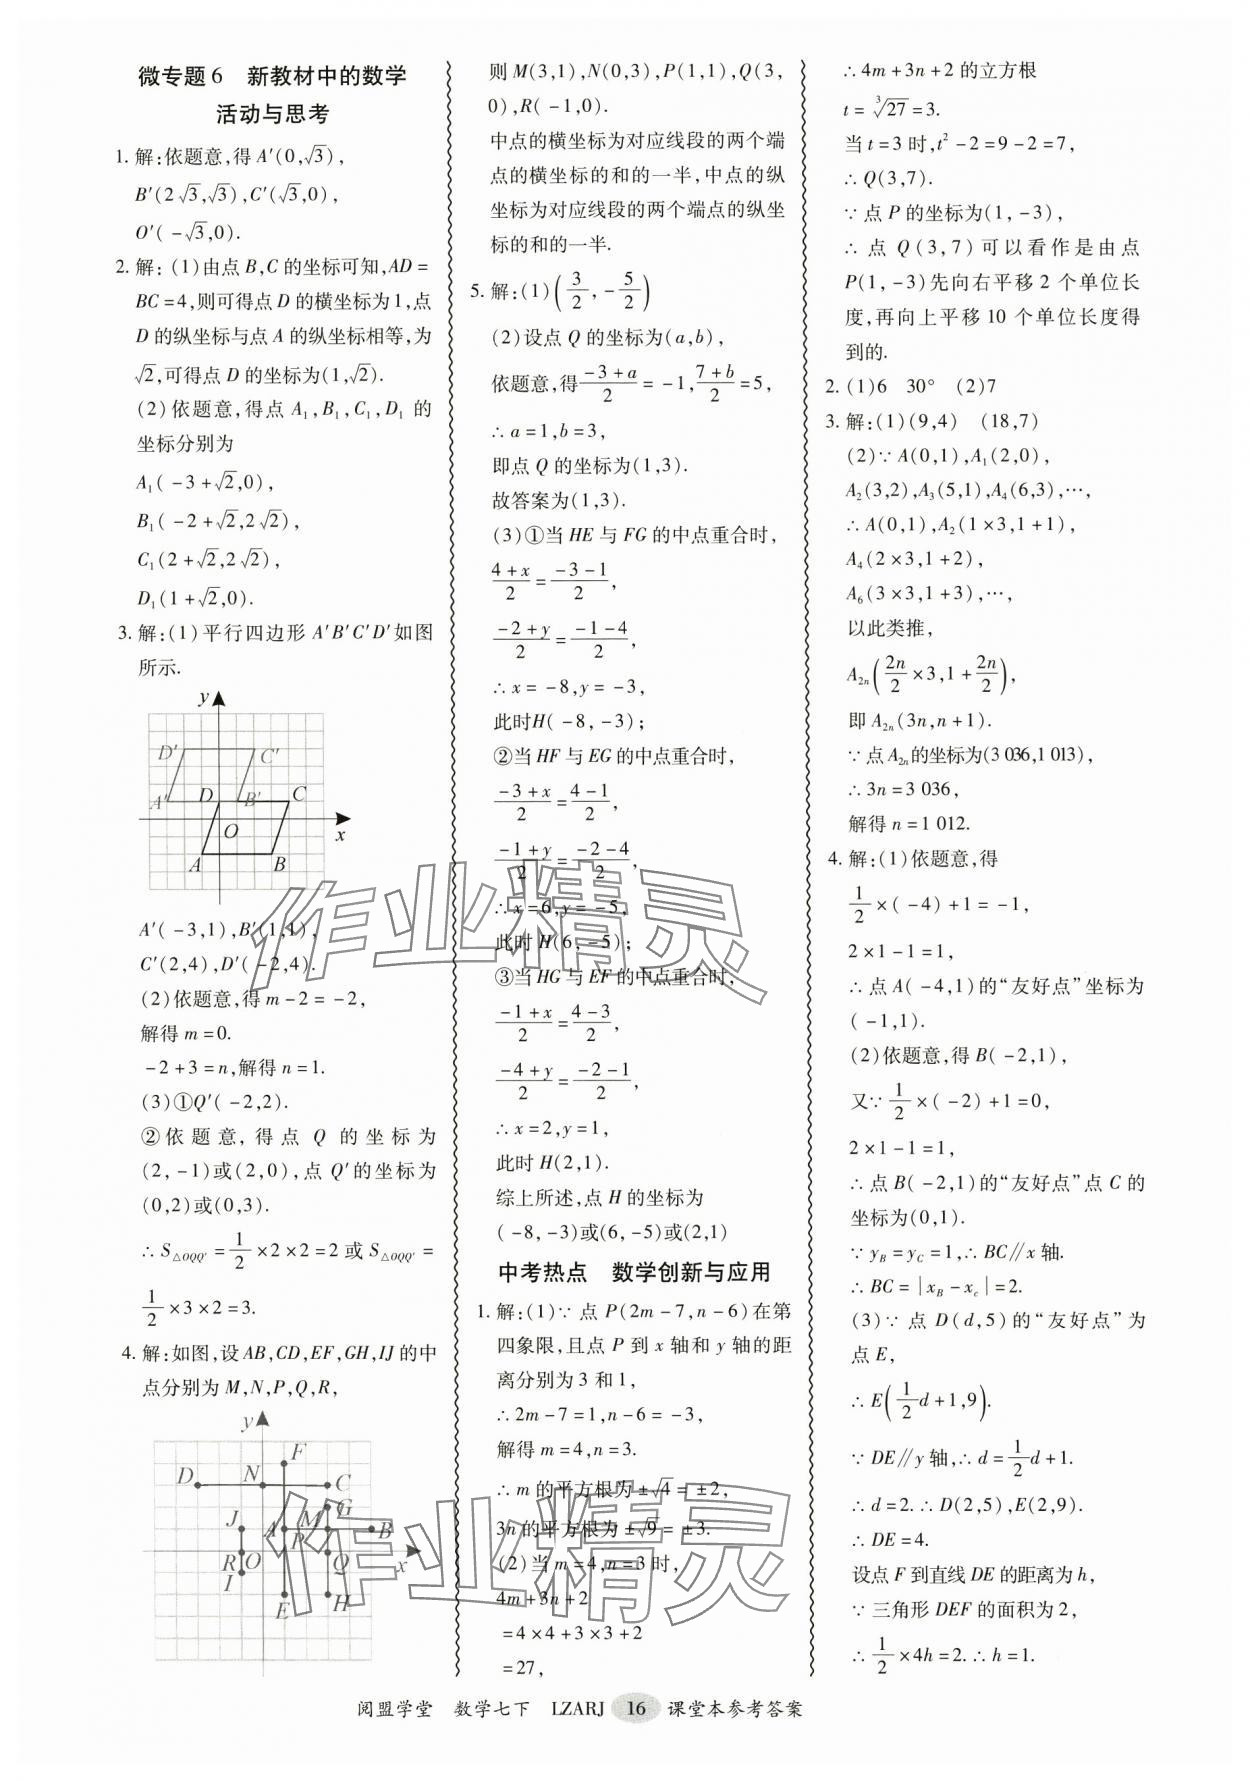 微专题6 新教材中的数学
活动与思考
1. 解:依题意,得 A′(0,√3),
B′(2√3,√3),C′(√3,0),
O′(-√3,0).
2. 解:(1)由点 B,C 的坐标可知,AD=
BC=4,则可得点 D 的横坐标为1,点
D 的纵坐标与点 A 的纵坐标相等,为
√2,可得点 D 的坐标为(1,√2).
(2)依题意,得点 A₁,B₁,C₁,D₁ 的
坐标分别为
A₁(-3+√2,0),
B₁(-2+√2,2√2),
C₁(2+√2,2√2),
D₁(1+√2,0).
3. 解:(1)平行四边形 A′B′C′D′如图
所示.
y
D′ C′
A′ D B′ C
O x
A B
A′(-3,1),B′(1,1),
C′(2,4),D′(-2,4).
(2)依题意,得 m-2=-2,
解得 m=0.
-2+3=n,解得 n=1.
(3)①Q′(-2,2).
②依题意,得点 Q 的坐标为
(2,-1)或(2,0),点 Q′的坐标为
(0,2)或(0,3).
∴S△OQQ′=1/2×2×2=2 或 S△OQQ′=
1/2×3×2=3.
4. 解:如图,设 AB,CD,EF,GH,IJ 的中
点分别为 M,N,P,Q,R,
y
F
D N C
G
J A P M B
R O Q x
I
E H
则 M(3,1),N(0,3),P(1,1),Q(3,
0),R(-1,0).
中点的横坐标为对应线段的两个端
点的横坐标的和的一半,中点的纵
坐标为对应线段的两个端点的纵坐
标的和的一半.
5. 解:(1)(3/2,-5/2)
(2)设点 Q 的坐标为(a,b),
依题意,得(-3+a)/2=-1,(7+b)/2=5,
∴a=1,b=3,
即点 Q 的坐标为(1,3).
故答案为(1,3).
(3)①当 HE 与 FG 的中点重合时,
(4+x)/2=(-3-1)/2,
(-2+y)/2=(-1-4)/2,
∴x=-8,y=-3,
此时H(-8,-3);
②当 HF 与 EG 的中点重合时,
(-3+x)/2=(4-1)/2,
(-1+y)/2=(-2-4)/2,
∴x=6,y=-5,
此时 H(6,-5);
③当 HG 与 EF 的中点重合时,
(-1+x)/2=(4-3)/2,
(-4+y)/2=(-2-1)/2,
∴x=2,y=1,
此时 H(2,1).
综上所述,点 H 的坐标为
(-8,-3)或(6,-5)或(2,1)
中考热点 数学创新与应用
1. 解:(1)∵点 P(2m-7,n-6)在第
四象限,且点 P 到 x 轴和 y 轴的距
离分别为3和1,
∴2m-7=1,n-6=-3,
解得 m=4,n=3.
∴m 的平方根为±√4=±2,
3n 的平方根为±√9=±3.
(2)当 m=4,n=3时,
4m+3n+2
=4×4+3×3+2
=27,
∴4m+3n+2 的立方根
t=³√27=3.
当 t=3 时,t²-2=9-2=7,
∴Q(3,7).
∵点 P 的坐标为(1,-3),
∴点 Q(3,7)可以看作是由点
P(1,-3)先向右平移2个单位长
度,再向上平移10个单位长度得
到的.
2. (1)6 30° (2)7
3. 解:(1)(9,4) (18,7)
(2)∵A(0,1),A₁(2,0),
A₂(3,2),A₃(5,1),A₄(6,3),…,
∴A(0,1),A₂(1×3,1+1),
A₄(2×3,1+2),
A₆(3×3,1+3),…,
以此类推,
A₂ₙ(2n/2×3,1+2n/2),
即 A₂ₙ(3n,n+1).
∵点 A₂ₙ的坐标为(3 036,1 013),
∴3n=3 036,
解得 n=1 012.
4. 解:(1)依题意,得
1/2×(-4)+1=-1,
2×1-1=1,
∴点 A(-4,1)的“友好点”坐标为
(-1,1).
(2)依题意,得 B(-2,1),
又∵1/2×(-2)+1=0,
2×1-1=1,
∴点 B(-2,1)的“友好点”点 C 的
坐标为(0,1).
∵y_B=y_C=1,∴BC∥x 轴.
∴BC=|x_B-x_c|=2.
(3)∵点 D(d,5)的“友好点”为
点 E,
∴E(1/2d+1,9).
∵DE∥y 轴,∴d=1/2d+1.
∴d=2.∴D(2,5),E(2,9).
∴DE=4.
设点 F 到直线 DE 的距离为 h,
∵三角形 DEF 的面积为2,
∴1/2×4h=2.∴h=1.
作业精灵
作业精灵
阅盟学堂 数学七下 LZARJ 16 课堂本参考答案